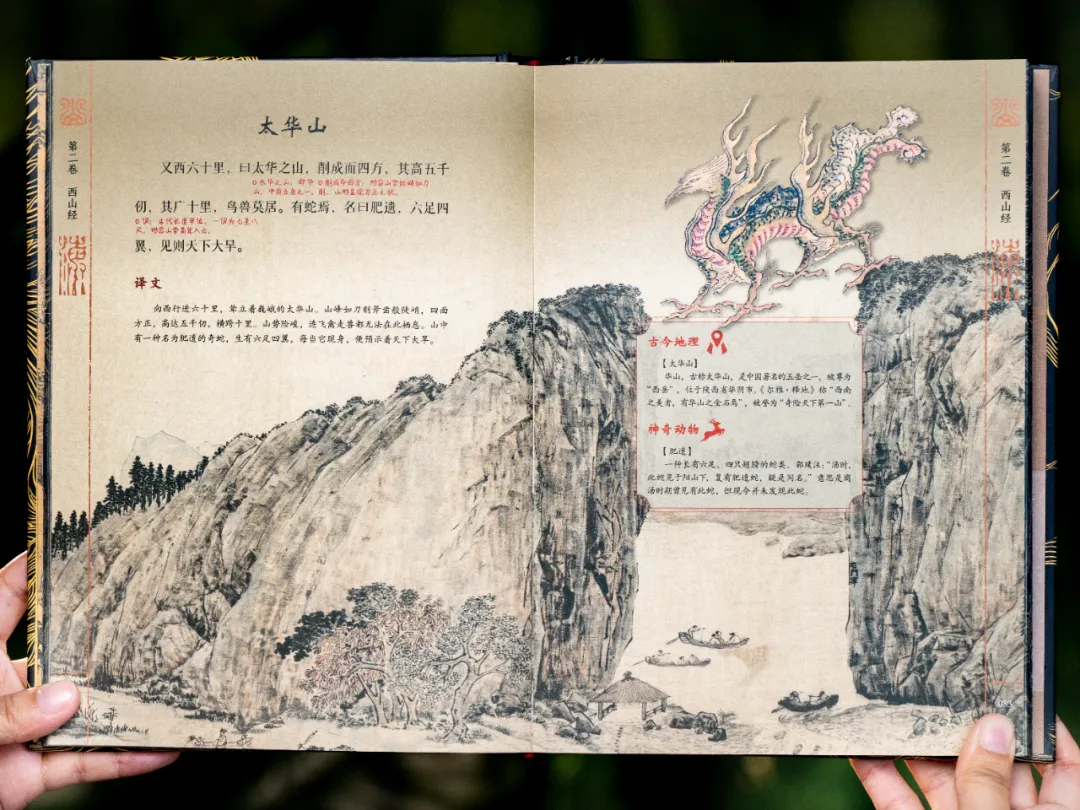 太华山
又西六十里，曰太华之山，削成而四方，其高五千
仞，其广十里，鸟兽莫居。有蛇焉，名曰肥遗，六足四
翼，见则天下大旱。
译文
向西行进六十里，耸立着巍峨的太华山。山峰如刀削斧凿般陡峭，四面
方正，高达五千仞，横跨十里。山势险峻，连飞禽走兽都无法在此栖息。山中
有一种名为肥遗的奇蛇，生有六足四翼，每当它现身，便预示着天下大旱。
第二卷 西山经
古今地理
【太华山】
华山，古称太华山，是中国著名的五岳之一，被尊为
“西岳”，位于陕西省华阴市，《尔雅·释地》称“西南
之美者，有华山之金石焉”，被誉为“奇险天下第一山”。
神奇动物
【肥遗】
一种长有六足、四只翅膀的蛇类。郭璞注：“汤时，
此蛇见于阳山下，复有肥遗蛇，疑是同名。”意思是商
汤时期曾见有此蛇，但现今并未发现此蛇。
第二卷 西山经